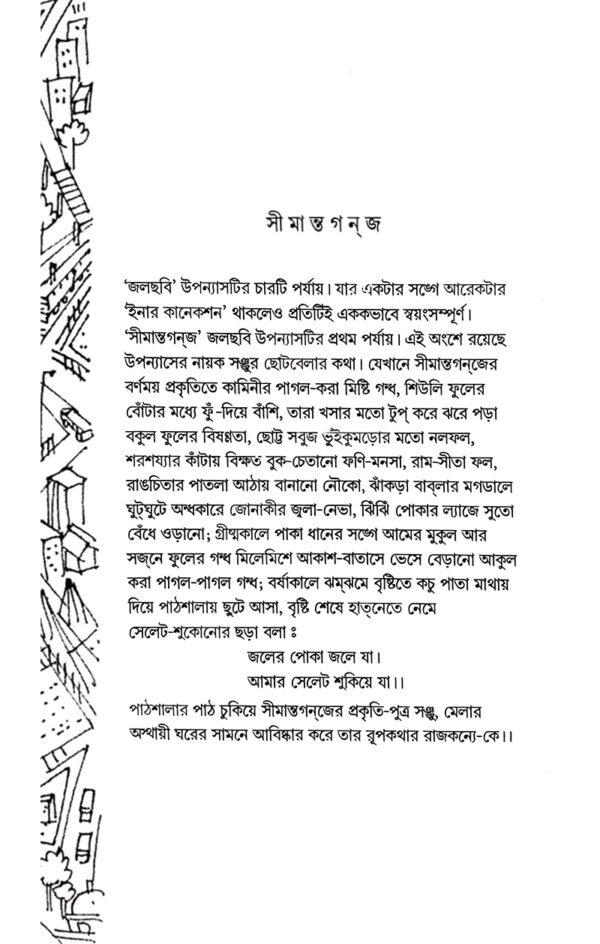 সীমান্তগন্‌জ
'জলছবি' উপন্যাসটির চারটি পর্যায়। যার একটার সঙ্গে আরেকটার
'ইনার কানেকশন' থাকলেও প্রতিটিই এককভাবে স্বয়ংসম্পূর্ণ।
'সীমান্তগন্‌জ' জলছবি উপন্যাসটির প্রথম পর্যায়। এই অংশে রয়েছে
উপন্যাসের নায়ক সঞ্জুর ছোটবেলার কথা। যেখানে সীমান্তগন্‌জের
বর্ণময় প্রকৃতিতে কামিনীর পাগল-করা মিষ্টি গন্ধ, শিউলি ফুলের
বোঁটার মধ্যে ফুঁ-দিয়ে বাঁশি, তারা খসার মতো টুপ্ করে ঝরে পড়া
বকুল ফুলের বিষণ্ণতা, ছোট্ট সবুজ ভুঁইকুমড়োর মতো নলফল,
শরশয্যার কাঁটায় বিক্ষত বুক-চেতানো ফণি-মনসা, রাম-সীতা ফল,
রাঙচিতার পাতলা আঠায় বানানো নৌকো, ঝাঁকড়া বাব্‌লার মগডালে
ঘুট্‌ঘুটে অন্ধকারে জোনাকীর জ্বলা-নেভা, ঝিঁঝিঁ পোকার ল্যাজে সুতো
বেঁধে ওড়ানো; গ্রীষ্মকালে পাকা ধানের সঙ্গে আমের মুকুল আর
সজ্‌নে ফুলের গন্ধ মিলেমিশে আকাশ-বাতাসে ভেসে বেড়ানো আকুল
করা পাগল-পাগল গন্ধ; বর্ষাকালে ঝম্‌ঝমে বৃষ্টিতে কচু পাতা মাথায়
দিয়ে পাঠশালায় ছুটে আসা, বৃষ্টি শেষে হাত্‌নেতে নেমে
সেলেট-শুকোনোর ছড়া বলা ঃ
জলের পোকা জলে যা।
আমার সেলেট শুকিয়ে যা।।
পাঠশালার পাঠ চুকিয়ে সীমান্তগন্‌জের প্রকৃতি-পুত্র সঞ্জু, মেলার
অস্থায়ী ঘরের সামনে আবিষ্কার করে তার রূপকথার রাজকন্যে-কে।।